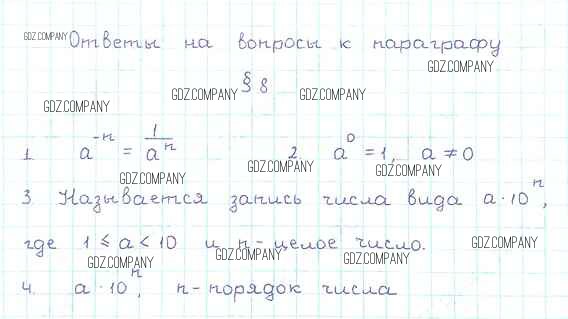 GDZ.COMPANY Ответы на вопросы к параграфу
GDZ.COMPANY
GDZ.COMPANY § 8 GDZ.COMPANY
GDZ.COMPANY
1. a⁻ⁿ = 1/aⁿ 2. a⁰ = 1, a ≠ 0
GDZ.COMPANY GDZ.COMPANY
GDZ.COMPANY
3 Называется запись числа вида a · 10ⁿ,
где 1 ≤ a < 10 и n - целое число. GDZ.COMPANY
GDZ.COMPANY GDZ.COMPANY GDZ.COMPANY
4. a · 10ⁿ, n - порядок числа